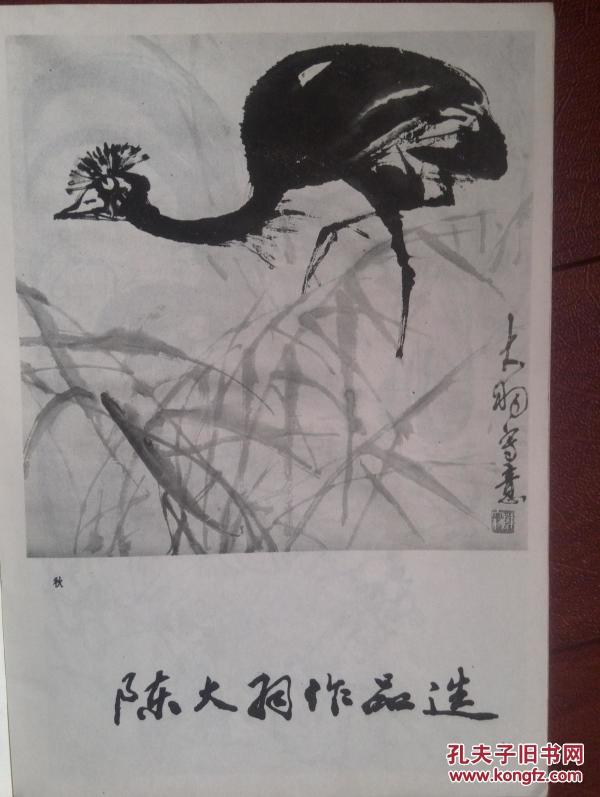 大羽写意
秋
陈大羽作品选
孔夫子旧书网
www.kongfz.com